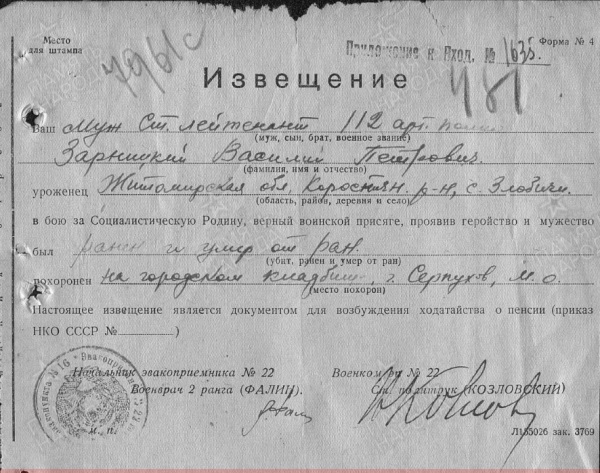 Место
для штампа
79/61с
Приложение к Вход. № 163s
Форма № 4
481
Извещение
Ваш муж Ст. лейтенант 112 арт. полка
(муж, сын, брат, военное звание)
Зарницкий Василий Петрович.
(фамилия, имя и отчество)
уроженец Житомирская обл., Коростян. р-н, с. Злобичи.
(область, район, деревня и село)
в бою за Социалистическую Родину, верный воинской присяге, проявив геройство и мужество
был ранен и умер от ран.
(убит, ранен и умер от ран)
похоронен на городском кладбище, г. Серпухов, М.О.
(место похорон)
Настоящее извещение является документом для возбуждения ходатайства о пенсии (приказ
НКО СССР №)
Начальник эвакоприемника № 22
Военврач 2 ранга (ФАЛИН).
Военком № 22
Ст. политрук (КОЗЛОВСКИЙ)
м. п.
Л155026 зак. 3769